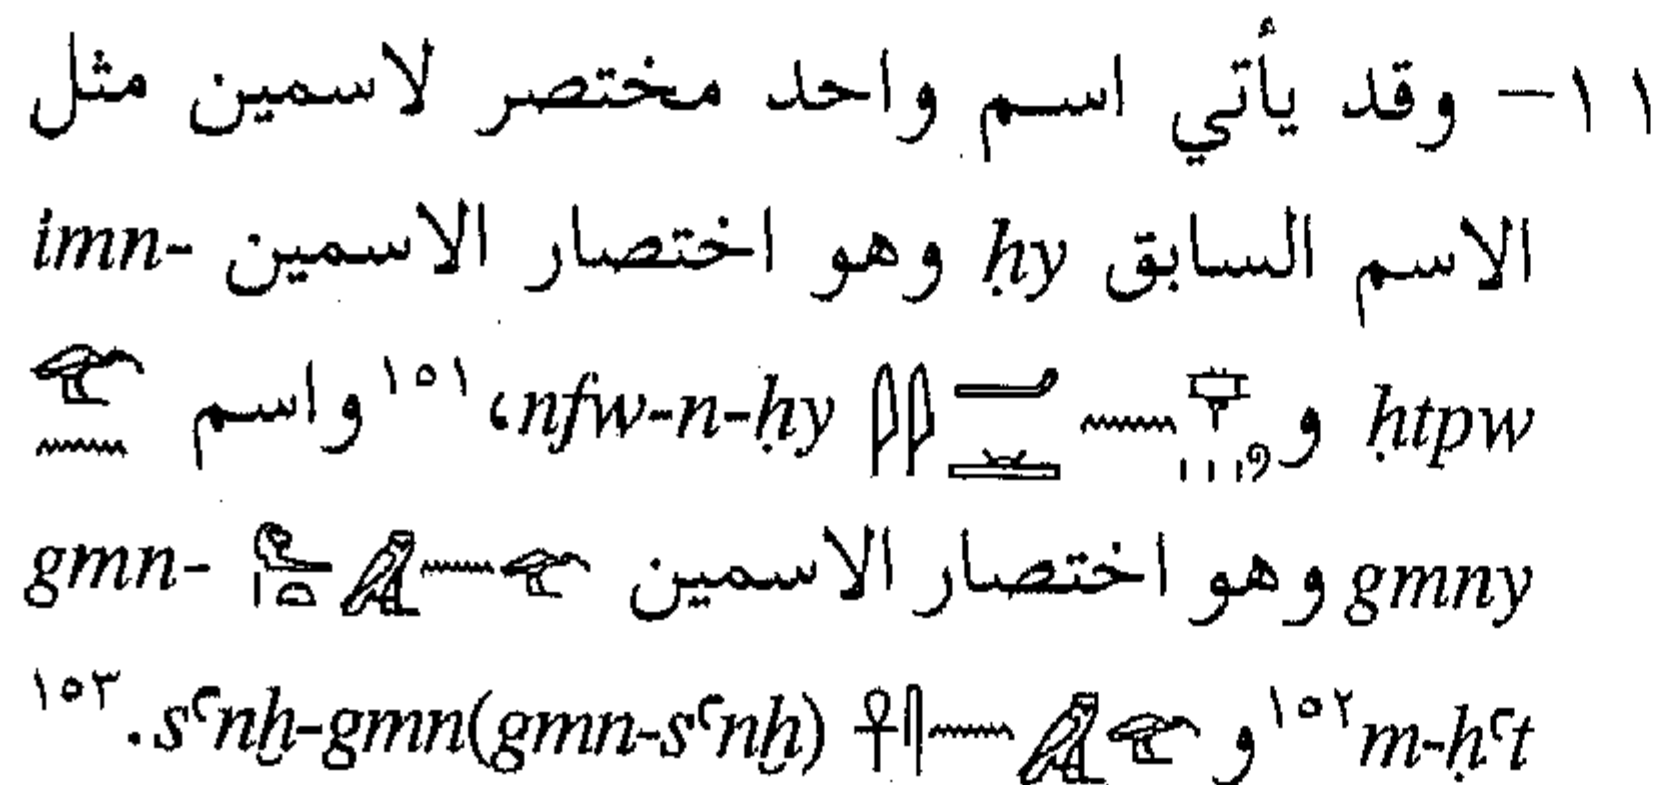 ١١- وقد يأتي اسم واحد مختصر لاسمين مثل
الاسم السابق ḥy وهو اختصار الاسمين imn-
ḥtpw و nfw-n-ḥy،١٥١ واسم
gmny وهو اختصار الاسمين gmn-
m-ḥꜥt١٥٢ و s‘nḫ-gmn(gmn-s‘nḫ).١٥٣